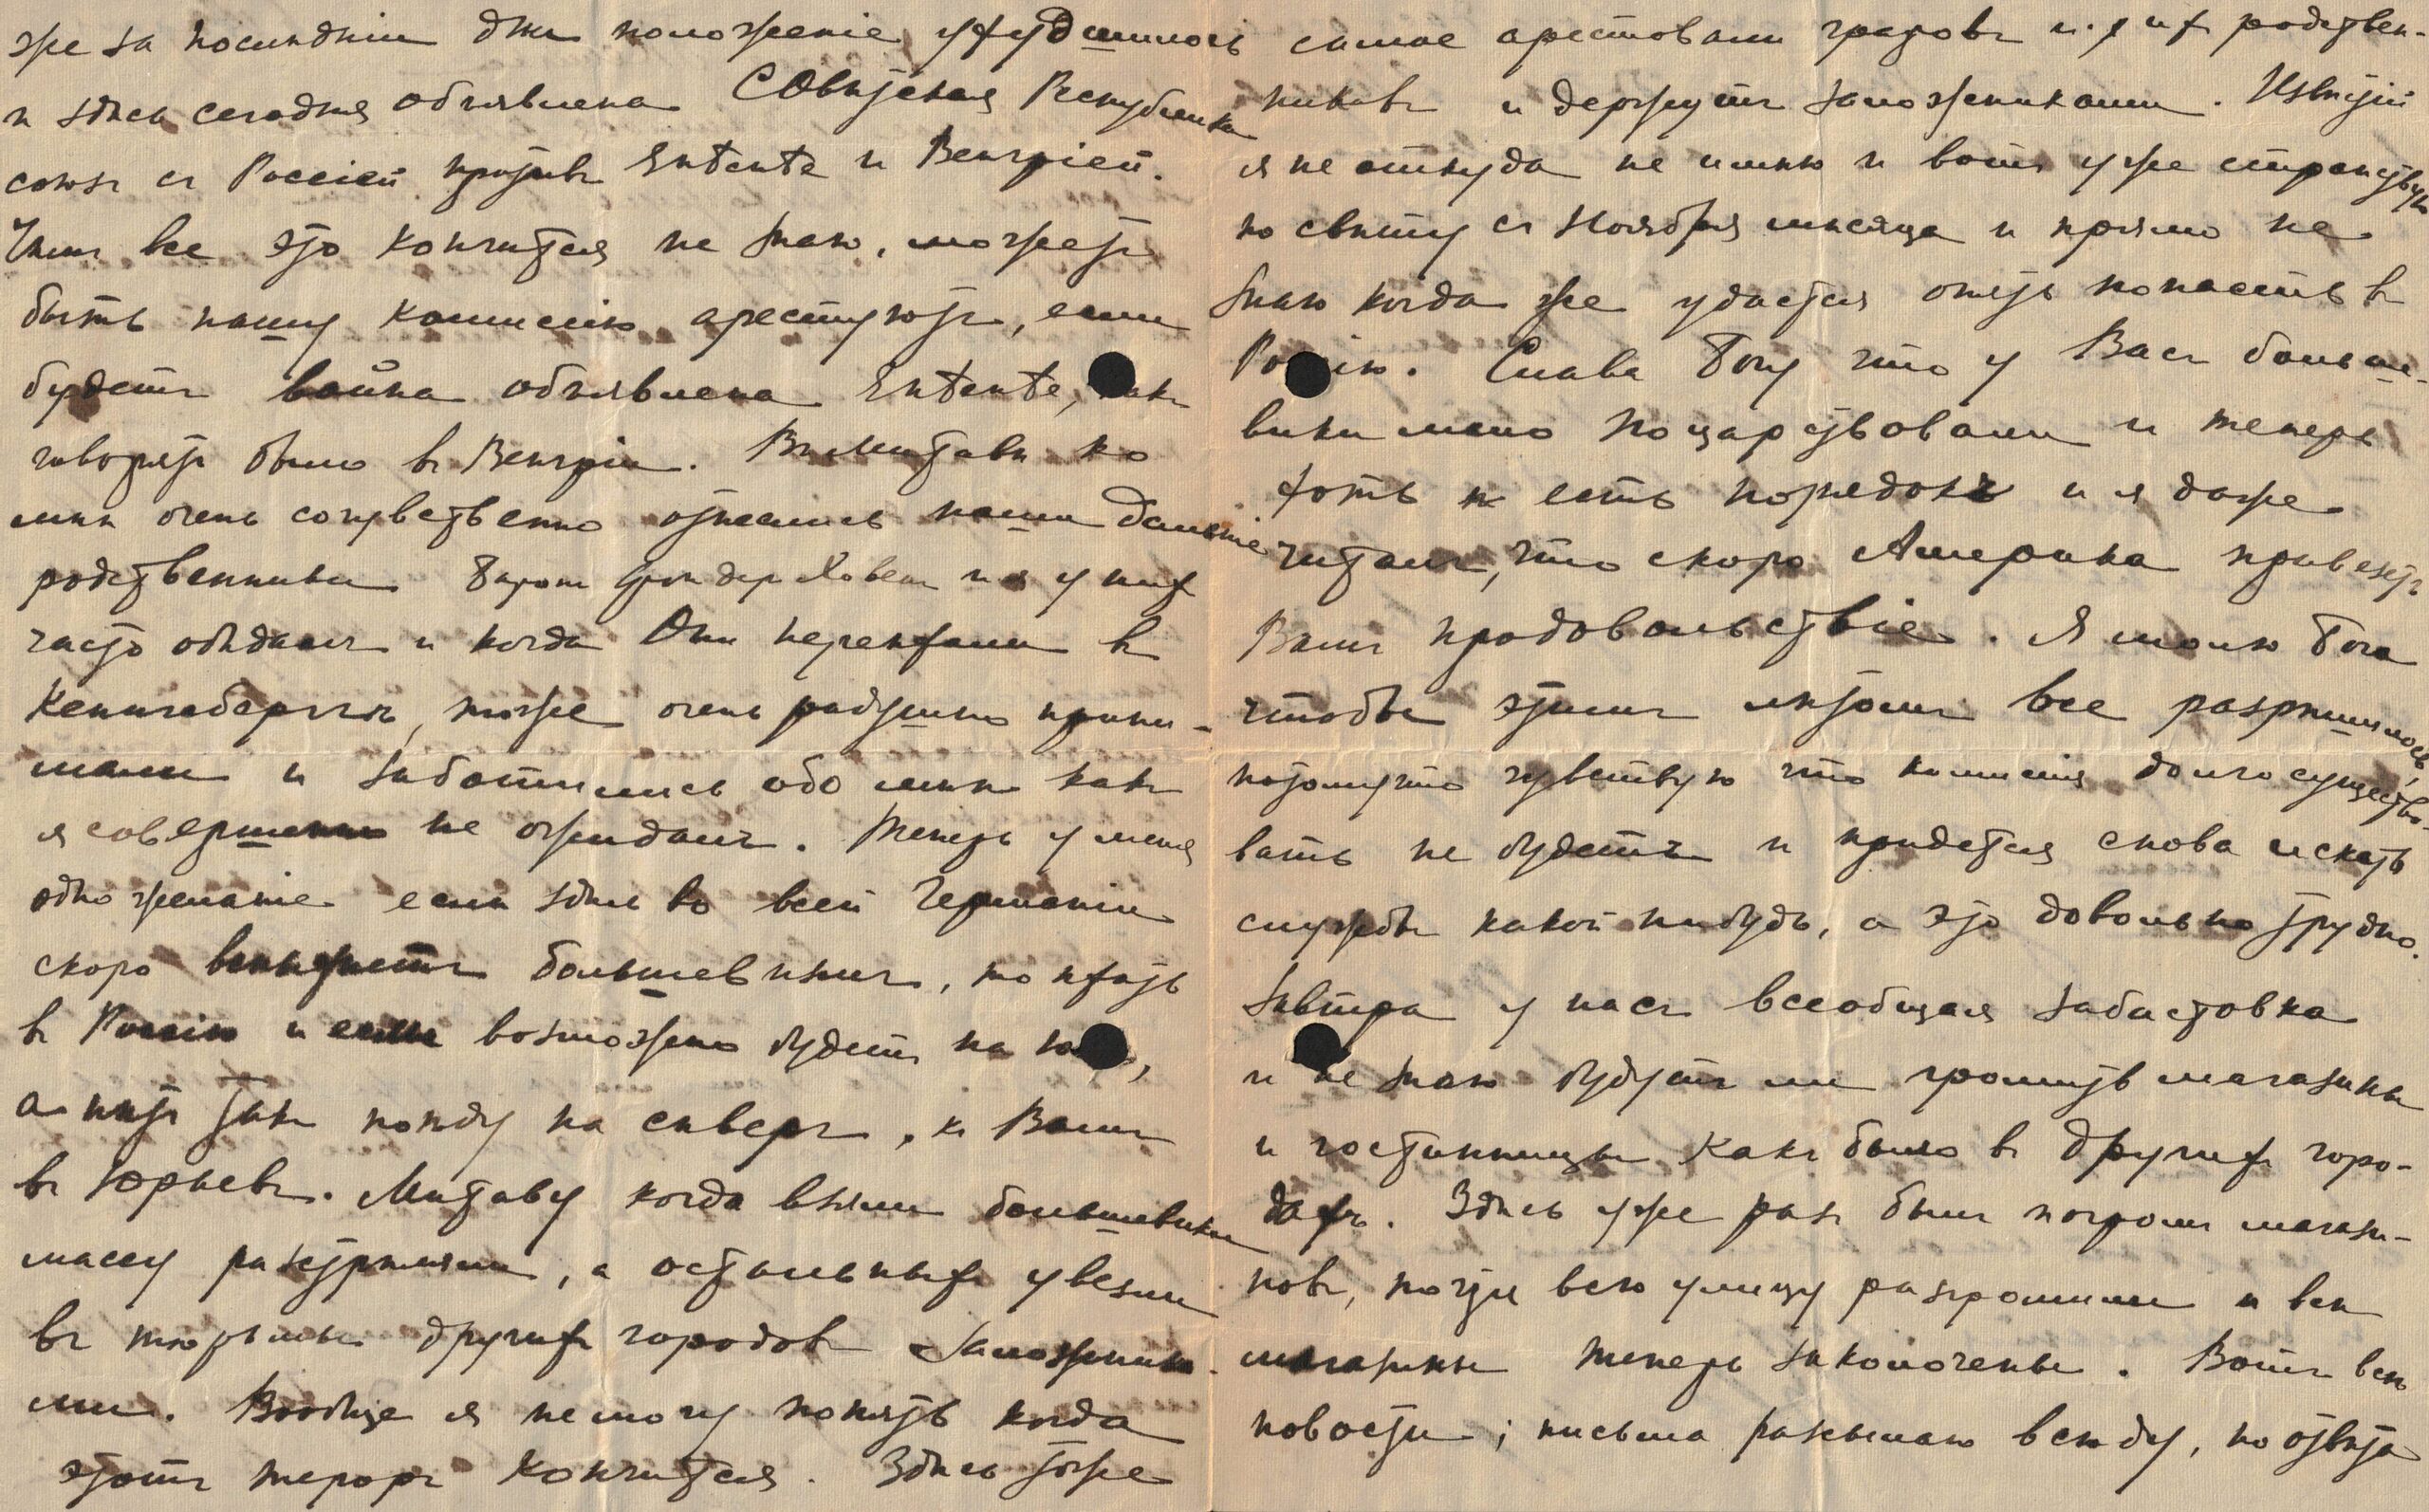 же за послѣднiи дни положенiе ухудшилось
и здѣсь сегодня объявлена СОвѣтская Республика
союзъ съ Россiей противъ Entente и Венгрiей.
Чѣмъ все это кончится не знаю, можетъ
быть нашу комисiю арестуютъ, если
будетъ война объявлена Entente, какъ
говорятъ было въ Венгрiи. Въ Митавѣ ко
мнѣ очень сочувственно отнеслись наши дальнiе
родственники Барон фон дер Ховен и я у них
часто обѣдалъ и когда Они переѣхали въ
Кенигсбергъ, тоже очень радушно прини-
мали и заботились обо мнѣ какъ
я совершенно не ожидалъ. Теперь у меня
одно желанiе если здѣсь во всей Германiи
скоро вспыхнетъ большевизмъ, то ѣхать
въ Россiю и если возможно будетъ на югъ,
а нѣтъ такъ поѣду на сѣверъ, къ Вамъ
въ Юрьевъ. Митаву когда взяли большевики
массу разстрѣляли, а остальныхъ увезли
въ тюрьмы другихъ городовъ заложника-
ми. Вообще я немогу понять когда
этотъ терроръ кончится. Здѣсь тоже
самое арестовали графовъ и ихъ родствен-
никовъ и держутъ заложниками. Извѣстiй
я не откуда не имѣю и вотъ уже странствую
по свѣту съ Ноября мѣсяца и прямо не
знаю когда же удастся опять попасть въ
Россiю. Слава Богу что у Васъ больше-
вики мало поцарствовали и теперь
хоть есть порядокъ и я даже
читалъ, что скоро Америка привезетъ
Вамъ продовольствiе. Я молю Бога
чтобы этимъ лѣтомъ все разрѣшилось,
потомучто чувствую что комисiя долго существо-
вать не будетъ и придется снова искать
службы какой нибудь, а это довольно трудно.
Завтра у насъ всеобщая забастовка
и не знаю будутъ ли громить магазины
и гостинницы какъ было въ другихъ горо-
дахъ. Здѣсь уже разъ былъ погромъ магази-
новъ, почти всю улицу разгромили и всѣ
магазины теперь заколочены. Вотъ всѣ
новости; письма разсылаю всюду, но отвѣта